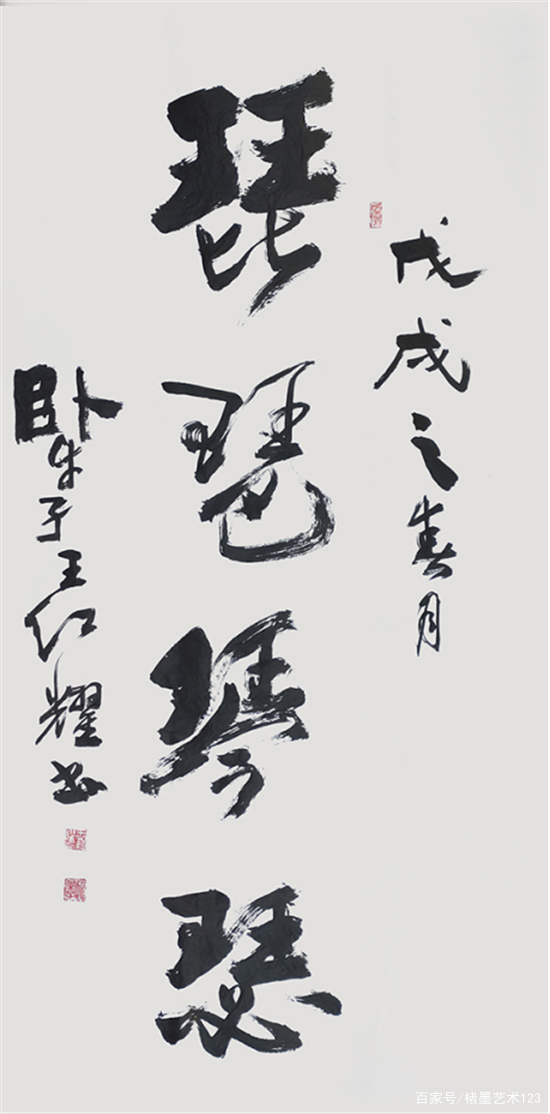 戊戌之春月
琵琶琴瑟
卧牛子王红耀书
百家号/楮墨艺术123